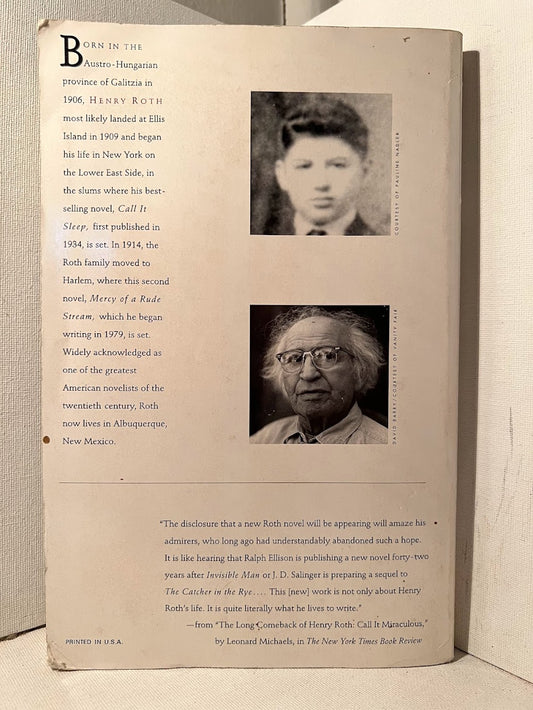 BORN IN THE
Austro-Hungarian
province of Galitzia in
1906, HENRY ROTH
most likely landed at Ellis
Island in 1909 and began
his life in New York on
the Lower East Side, in
the slums where his best-
selling novel, Call It
Sleep, first published in
1934, is set. In 1914, the
Roth family moved to
Harlem, where this second
novel, Mercy of a Rude
Stream, which he began
writing in 1979, is set.
Widely acknowledged as
one of the greatest
American novelists of the
twentieth century, Roth
now lives in Albuquerque,
New Mexico.
COURTESY OF PAULINE NADLER
DAVID BARRY/COURTESY OF VANITY FAIR
"The disclosure that a new Roth novel will be appearing will amaze his
admirers, who long ago had understandably abandoned such a hope.
It is like hearing that Ralph Ellison is publishing a new novel forty-two
years after Invisible Man or J. D. Salinger is preparing a sequel to
The Catcher in the Rye.... This [new] work is not only about Henry
Roth's life. It is quite literally what he lives to write."
—from "The Long Comeback of Henry Roth: Call It Miraculous,"
by Leonard Michaels, in The New York Times Book Review
PRINTED IN U.S.A.